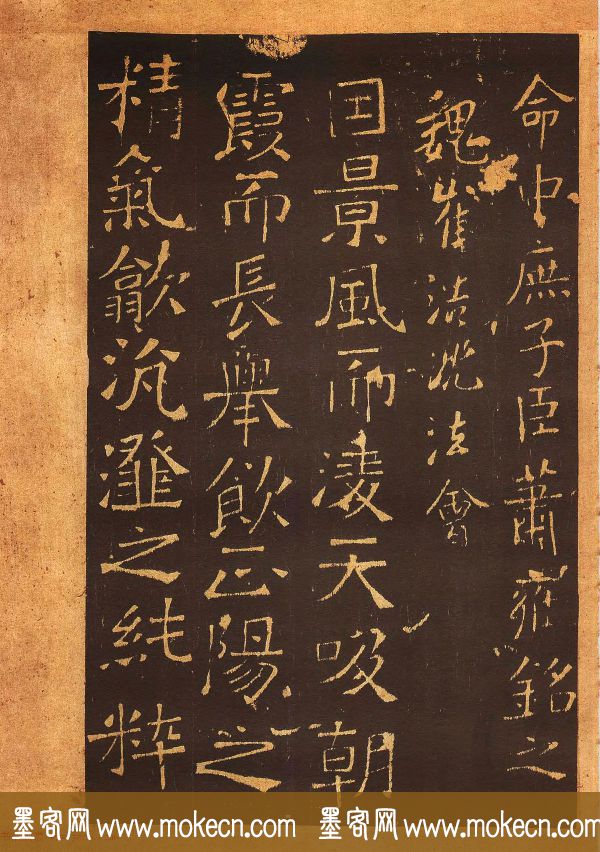 命中庶子臣蕭銘之
魏崔法會
因景風而淩天吸朝
霞而長舉飲正陽之
精氣歙沆瀣之純粹
墨客网 www.mokecn.com 墨客网 www.mokecn.com